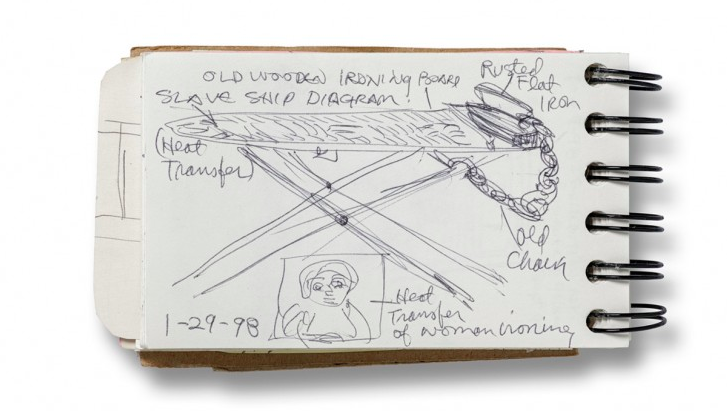 OLD WOODEN IRONING BOARD
SLAVE SHIP DIAGRAM.
(Heat
Transfer)
Rusted
Flat
Iron
old
Chain
1-29-98
Heat
Transfer
of woman ironing